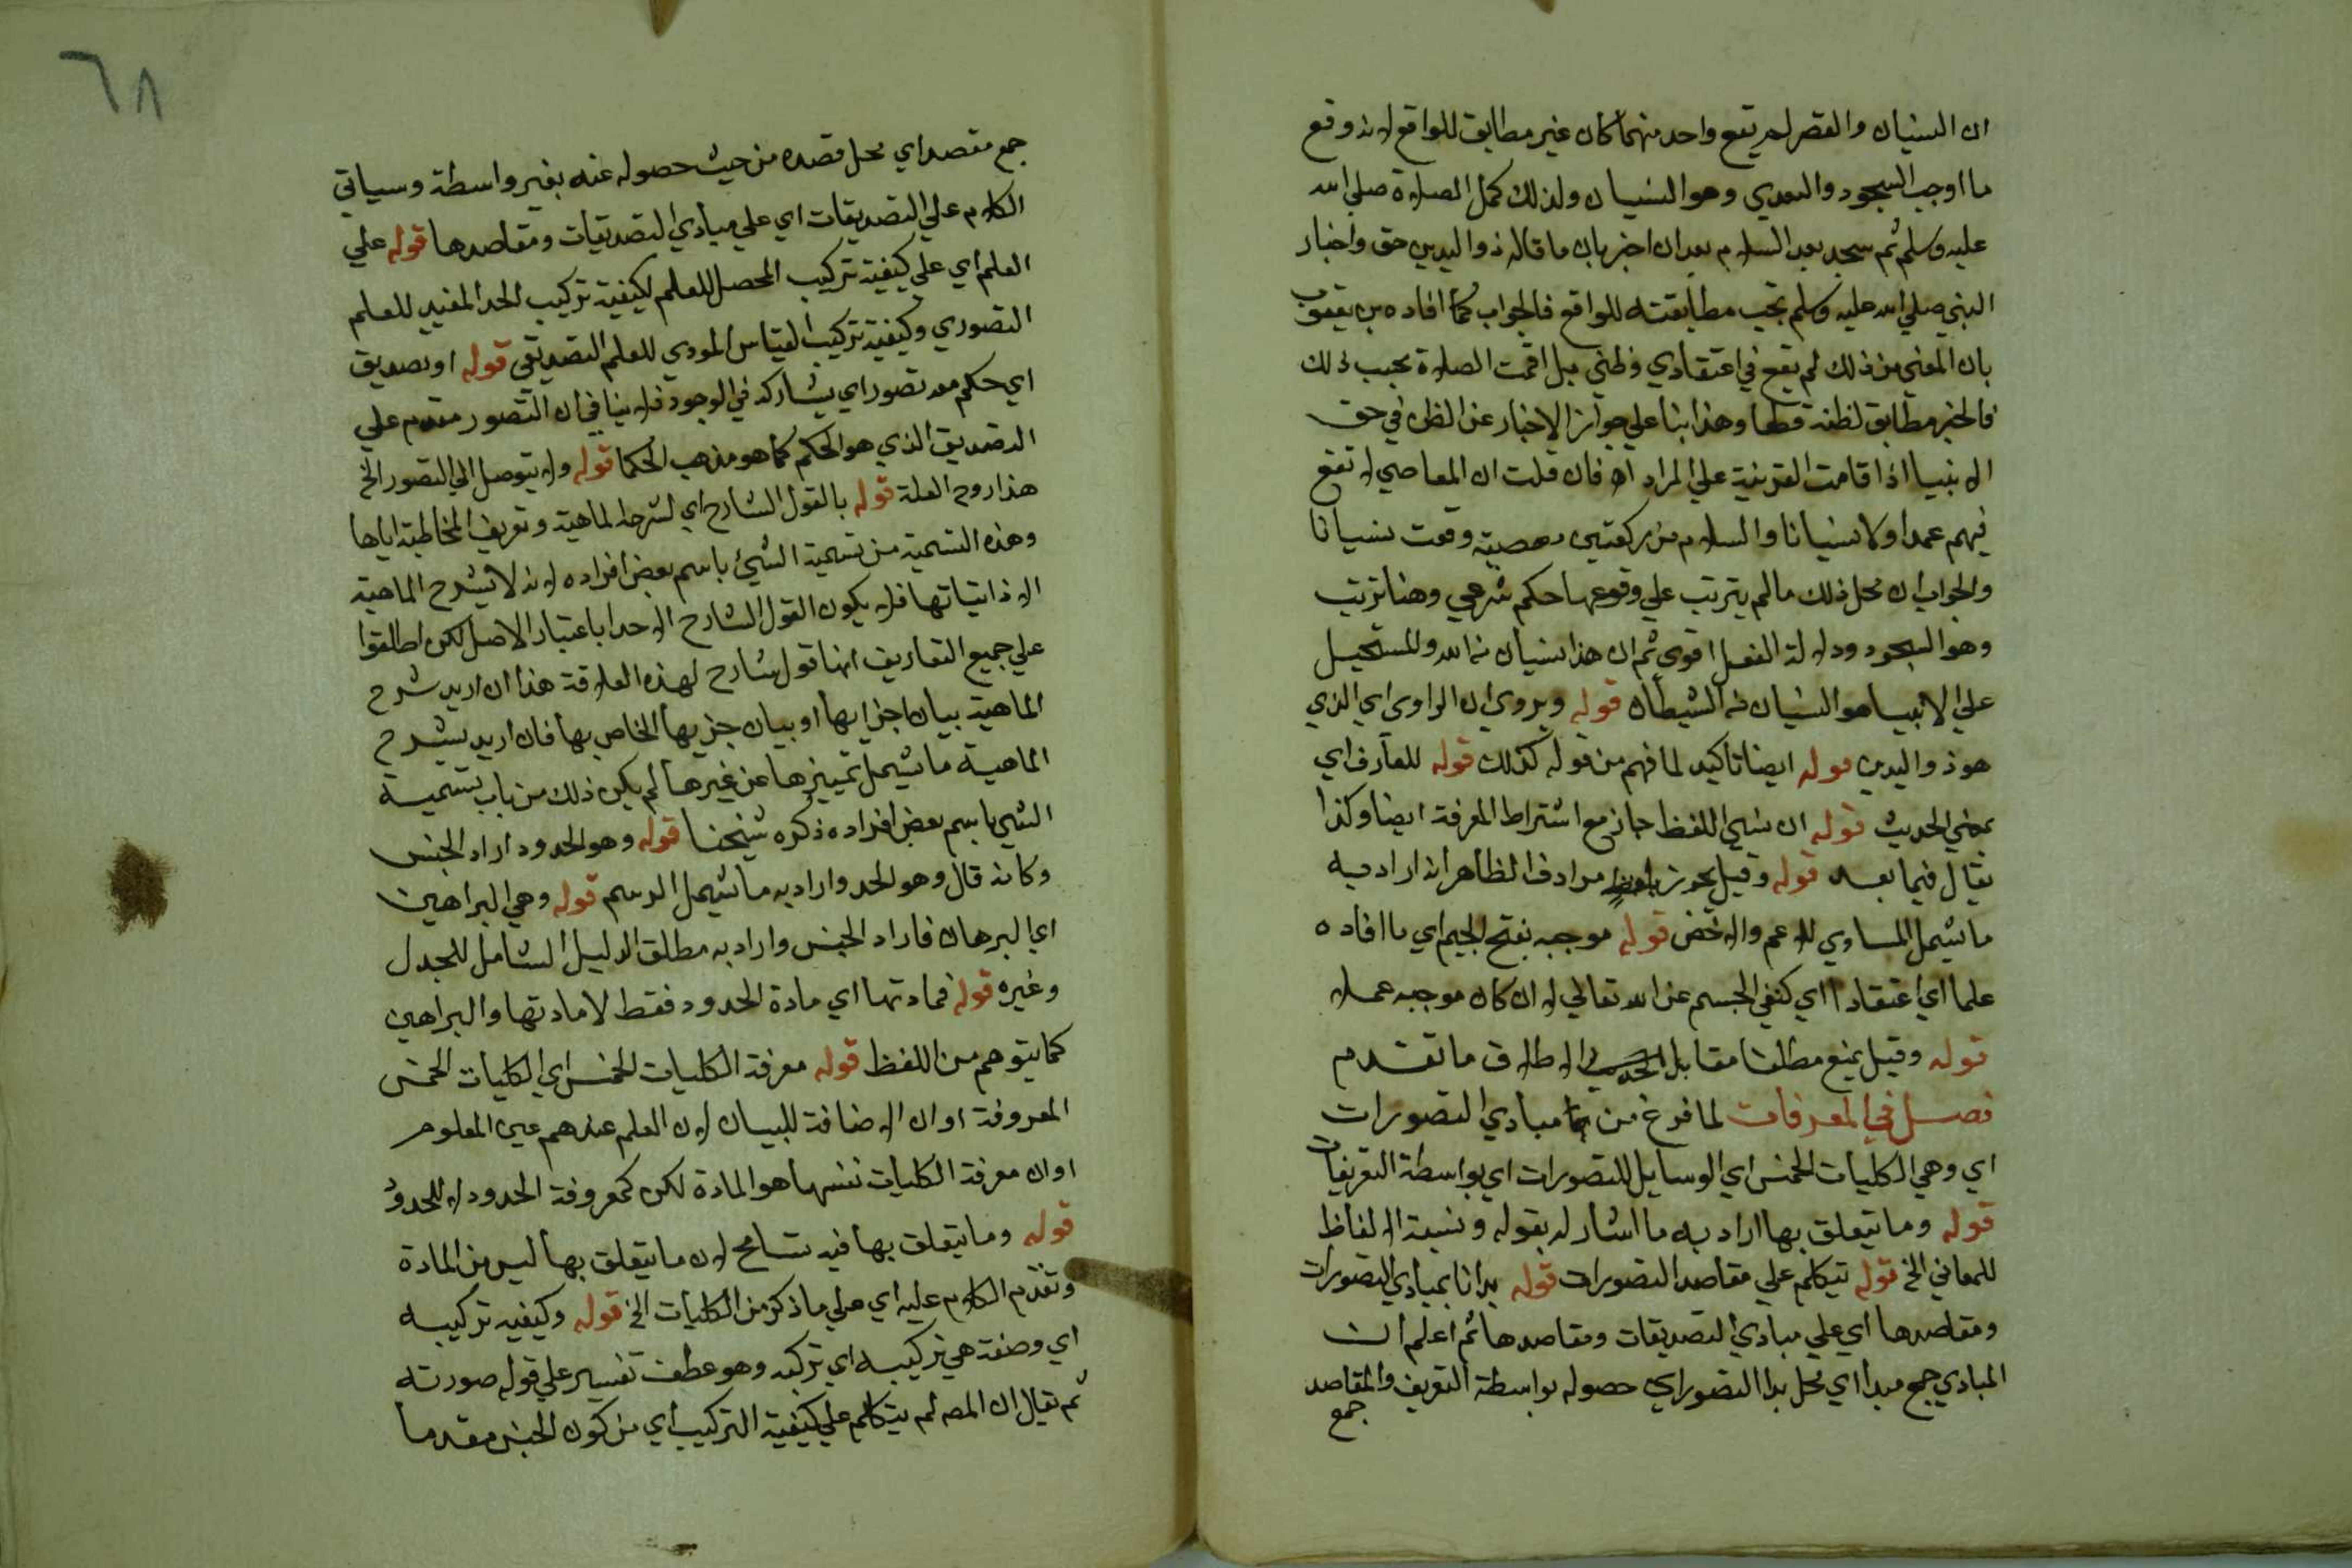 ان النسيان والقصر لم يقع واحد منهما كان غير مطابق للواقع لانه وقع
ما اوجب السجود والبعدي وهو النسيان ولذلك كمل الصلاة صلي الله
عليه وسلم ثم سجد بعد السلام بعد ان اخبر بان ما قاله ذو اليدين حق واخبار
النبي صلي الله عليه وسلم تجب مطابقته للواقع فالجواب كما افاده بن يعقوب
بان المعني من ذلك لم يقع في اعتقادي وظني بل اقمت الصلاة بحب ذلك
فالخبر مطابق لظنه قطعا وهذا بنا علي جواز الاخبار عن الظن في حق
الانبيا اذا قامت القرينة علي المراد اه فان قلت ان المعاصي لا تقع
فيهم عمدا ولا نسيانا والسلام من ركعتين معصية وقعت نسيانا
والجواب ان محل ذلك ما لم يترتب علي وقوعها حكم شرعي وهنا ترتب
وهو السجود ودلالة الفعل اقوي ثم ان هذا نسيان من الله والمستحيل
علي الانبيا هو النسيان من الشيطان قوله ويروي ان الراوي اي الذي
هو ذو اليدين قوله ايضا تاكيد لما فهم من قوله كذلك قوله للعارف اي
بمعني الحديث قوله ان نسي اللفظ جاز مع اشتراط المعرفة ايضا وكذا
يقال فيما بعده قوله وقيل يجوز بلفظ مرادف الظاهر انه اراد به
ما يشمل المساوي للاعم والاخص قوله موجبه بفتح الجيم اي ما افاده
علما اي اعتقادا اي كنفي الجسم عن الله تعالي لا ان كان موجبه عملا
قوله وقيل يمنع مطلقا مقابل الاطلاق ما تقدم
فصل في المعرفات لما فرغ من مبادي التصورات
اي وهي الكليات الخمس اي الوسايل للتصورات اي بواسطة التعريفات
قوله وما يتعلق بها اراد به ما اشار له بقوله ونسبة الالفاظ
للمعاني الخ قوله تيكلم علي مقاصد التصورات قوله بدانا بمبادي التصورات
ومقاصدها اي علي مبادي التصديقات ومقاصدها ثم اعلم ان
المبادي جمع مبدا اي محل بدا التصور اي حصوله بواسطة التعريف والمقاصد
جمع
٦٨
جمع مقصد اي محل قصده من حيث حصوله عنه بغير واسطة وسياتي
الكلام علي التصديقات اي علي مبادي التصديقات ومقاصدها قوله علي
العلم اي علي كيفية تركيب المحصل للعلم لكيفية تركيب الحد المفيد للعلم
التصوري وكيفية تركيب القياس المودي للعلم التصديقي قوله او تصديق
اي حكم معه تصور اي يشاركه في الوجود فلا ينافي ان التصور مقدم علي
التصديق الذي هو الحكم كما هو مذهب الحكما قوله ولا يتوصل الي التصور الخ
هذا روح العلة قوله بالقول الشارح اي لشرحه الماهية وتعريف المخاطب اياها
وهذه التسمية من تسمية الشيئ باسم بعض افراده لانه لا يشرح الماهية
الا ذاتياتها فلا يكون القول الشارح الا حدا باعتبار الاصل لكن اطلقوا
علي جميع التعاريف انها قول شارح لهذه العلاقة هذا ان اريد شرح
الماهية ببيان اجزايها او بيان جزيها الخاص بها فان اريد بشرح
الماهية ما يشمل تمييزها عن غيرها لم يكن ذلك من باب تسمية
الشي باسم بعض افراده ذكره شيخنا قوله وهو الحدود اراد الجنس
وكانه قال وهو الحد واراد به ما يشمل الرسم قوله وهي البراهين
اي البرهان فاراد الجنس واراد به مطلق الدليل الشامل للجدل
وغيره قوله فمادتها اي مادة الحدود فقط لا مادتها والبراهين
كما يتوهم من اللفظ قوله معرفة الكليات الخمس اي الكليات الخمس
المعروفة او ان الاضافة للبيان لان العلم عندهم عين المعلوم
او ان معرفة الكليات نفسها هو المادة لكن كمعروفة الحدود لا للحدود
قوله وما يتعلق بها فيه تسامح لان ما يتعلق بها ليس من المادة
وتقدم الكلام عليه اي علي ما ذكر من الكليات الخ قوله وكيفيه تركيبه
اي وصفة هي تركيبه اي تركبه وهو عطف تفسير علي قوله صورته
ثم يقال ان المصه لم يتكلم علي كيفية التركيب اي من كون الجنس مقدما